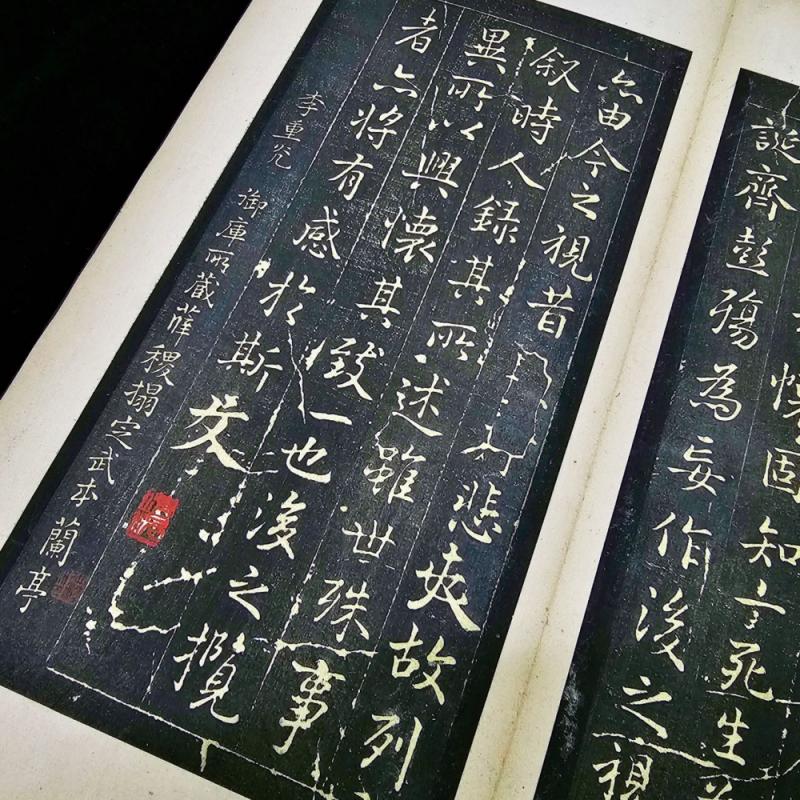 固知一死生
誕齊彭殤為妄作後之視
亦由今之視昔悲夫故列
叙時人錄其所述雖世殊事
異所以興懷其致一也後之攬
者亦將有感於斯文
李重光 御庫所藏薛稷搨定武本蘭亭